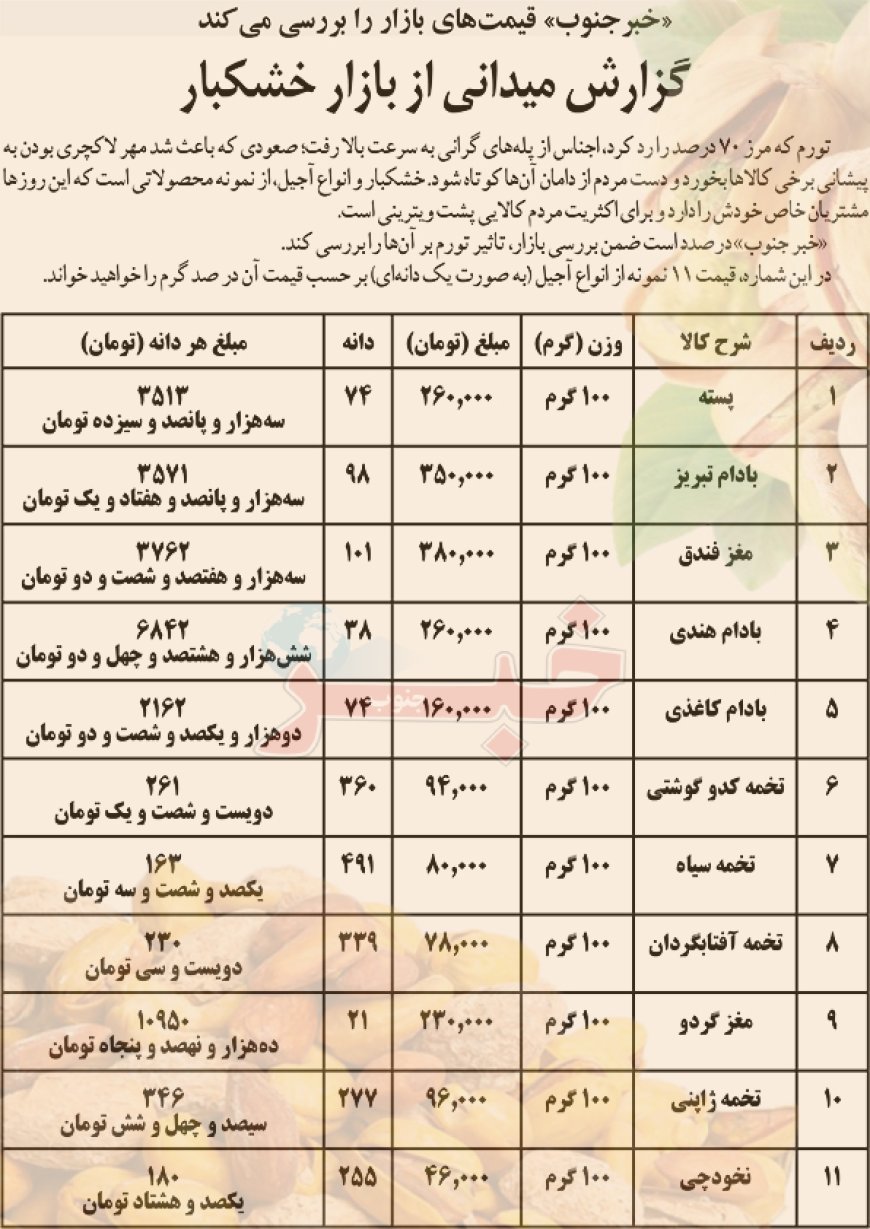 «خبرجنوب» قیمت‌های بازار را بررسی می‌کند
گزارش میدانی از بازار خشکبار
تورم که مرز ۷۰ درصد را رد کرد، اجناس از پله‌های گرانی به سرعت بالا رفت؛ صعودی که باعث شد مهر لاکچری بودن به
پیشانی برخی کالاها بخورد و دست مردم از دامان آن‌ها کوتاه شود. خشکبار و انواع آجیل، از نمونه محصولاتی است که این روزها
مشتریان خاص خودش را دارد و برای اکثریت مردم کالایی پشت ویترینی است.
«خبر جنوب» درصدد است ضمن بررسی بازار، تاثیر تورم بر آن‌ها را بررسی کند.
در این شماره، قیمت ۱۱ نمونه از انواع آجیل (به صورت یک دانه‌ای) بر حسب قیمت آن در صد گرم را خواهید خواند.
ردیف شرح کالا وزن (گرم) مبلغ (تومان) دانه مبلغ هر دانه (تومان)
۱ پسته ۱۰۰ گرم ۲۶۰,۰۰۰ ۷۴ ۳۵۱۳
سه‌هزار و پانصد و سیزده تومان
۲ بادام تبریز ۱۰۰ گرم ۳۵۰,۰۰۰ ۹۸ ۳۵۷۱
سه‌هزار و پانصد و هفتاد و یک تومان
۳ مغز فندق ۱۰۰ گرم ۳۸۰,۰۰۰ ۱۰۱ ۳۷۶۲
سه‌هزار و هفتصد و شصت و دو تومان
۴ بادام هندی ۱۰۰ گرم ۲۶۰,۰۰۰ ۳۸ ۶۸۴۲
شش‌هزار و هشتصد و چهل و دو تومان
۵ بادام کاغذی ۱۰۰ گرم ۱۶۰,۰۰۰ ۷۴ ۲۱۶۲
دوهزار و یکصد و شصت و دو تومان
۶ تخمه کدو گوشتی ۱۰۰ گرم ۹۴,۰۰۰ ۳۶۰ ۲۶۱
دویست و شصت و یک تومان
۷ تخمه سیاه ۱۰۰ گرم ۸۰,۰۰۰ ۴۹۱ ۱۶۳
یکصد و شصت و سه تومان
۸ تخمه آفتابگردان ۱۰۰ گرم ۷۸,۰۰۰ ۳۳۹ ۲۳۰
دویست و سی تومان
۹ مغز گردو ۱۰۰ گرم ۲۳۰,۰۰۰ ۲۱ ۱۰۹۵۰
ده‌هزار و نهصد و پنجاه تومان
۱۰ تخمه ژاپنی ۱۰۰ گرم ۹۶,۰۰۰ ۲۷۷ ۳۴۶
سیصد و چهل و شش تومان
۱۱ نخودچی ۱۰۰ گرم ۴۶,۰۰۰ ۲۵۵ ۱۸۰
یکصد و هشتاد تومان
خبر جنوب